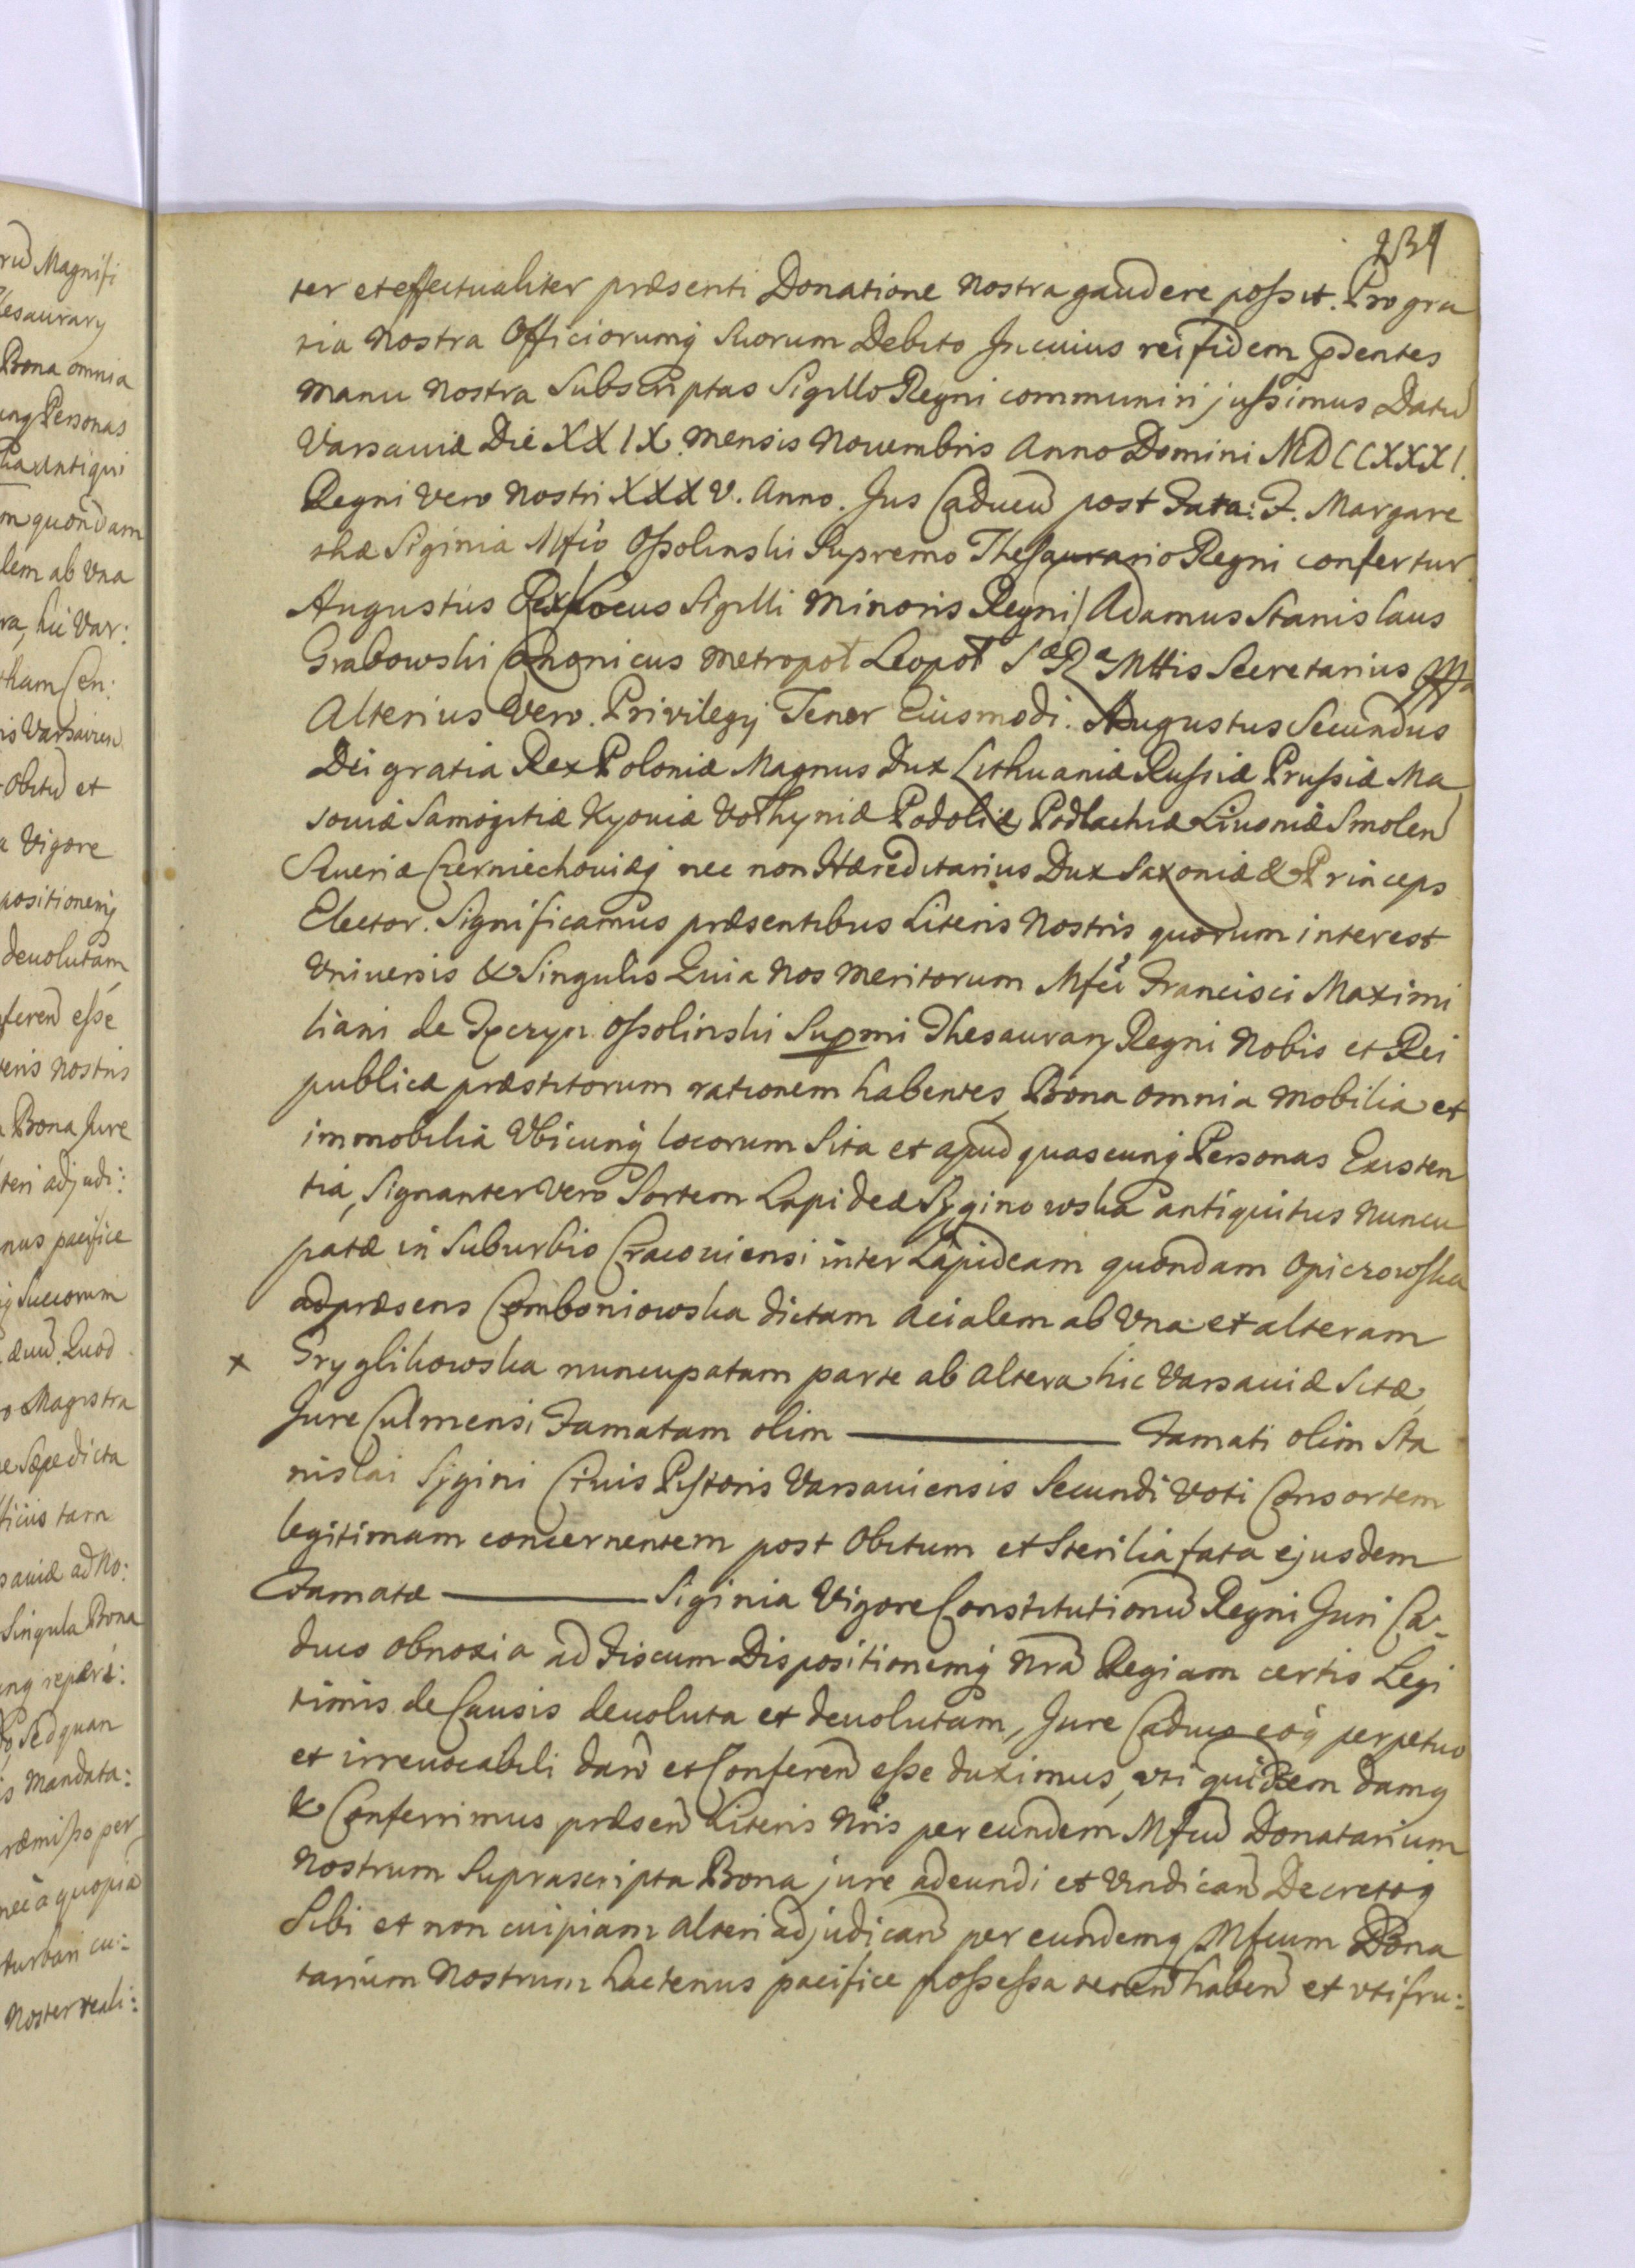 234
ter et effectualiter præsenti Donatione Nostra gaudere possit. Pro gra
tia Nostra Officiorumq Suorum Debito In cuius rei fidem pdentes
Manu Nostra Subscriptas Sigillo Regni communiri jussimus Datu
Varsaviæ Die XXIX. Mensis Novembris Anno Domini MDCCXXXI.
Regni Vero Nostri XXXV. Anno. Jus Caducu post Fata: F. Margare
thæ Siginia Mfio Ossolinski Supremo Thesaurario Regni confertur
Augustus Rex Locus Sigilli Minoris Regni / Adamus Stanislaus
Grabowski Canonicus Metropol Leopol S Ræ Mttis Secretarius
Alterius Vero Privilegij Tenor Eiusmodi. Augustus Secundus
Dei gratia Rex Poloniæ Magnus Dux Lithuaniæ Russiæ Prussiæ Ma
soviæ Samogitiæ Kyoviæ Volhyniæ Podoliæ Podlachiæ Livoniæ Smolen
Severiæ Czerniechoviæq nec non Hæreditarius Dux Saxoniæ & Princeps
Elector. Significamus præsentibus Literis Nostris quorum interest
Universis & Singulis Quia Nos Meritorum Mfci Francisci Maximi
liani de Tęczyn Ossolinski Supmi Thesaurarij Regni Nobis et Rei
publicæ præstitorum rationem habentes, Bona omnia Mobilia et
immobilia Vbicunq locorum Sita et apud quascunq Personas Existen
tia, Signanter Vero Sortem Lapideæ Syginowska antiquitus Nuncu
patæ in Suburbio Cracoviensi inter Lapideam quondam Opierowska
adpræsens Comboniowska dictam Acialem ab Vna et alteram
x Gryglikowska nuncupatam parte ab Altera hic Varsaviæ Sitæ,
Jure Culmensi Famatam olim ——— Famati olim Sta
nislai Sygini Civis Pistoris Varsaviensis Secundi Voti Consortem
legitimam concernentem post Obitum et Sterilia fata ejusdem
Famatæ ——— Siginia Vigore Constitutionu Regni Juri Ca-
duco obnoxia ad Fiscum Dispositionemq Nra Regiam certis Legi
timis de Causis devoluta et devolutam, Jure Caduco eoq perpetuo
et irrevocabili dan et Conferen esse duximus, vti quidem damq
& Conferrimus præsen Literis Nris per eundem Mfcu Donatarium
Nostrum Suprascripta Bona jure adeundi et Vndican Decretoq
Sibi et non cuipiam Alteri adjudican per eundemq Mfcum Dona
tarium Nostrum hactenus pacifice possessa tenen haben et vtifru: